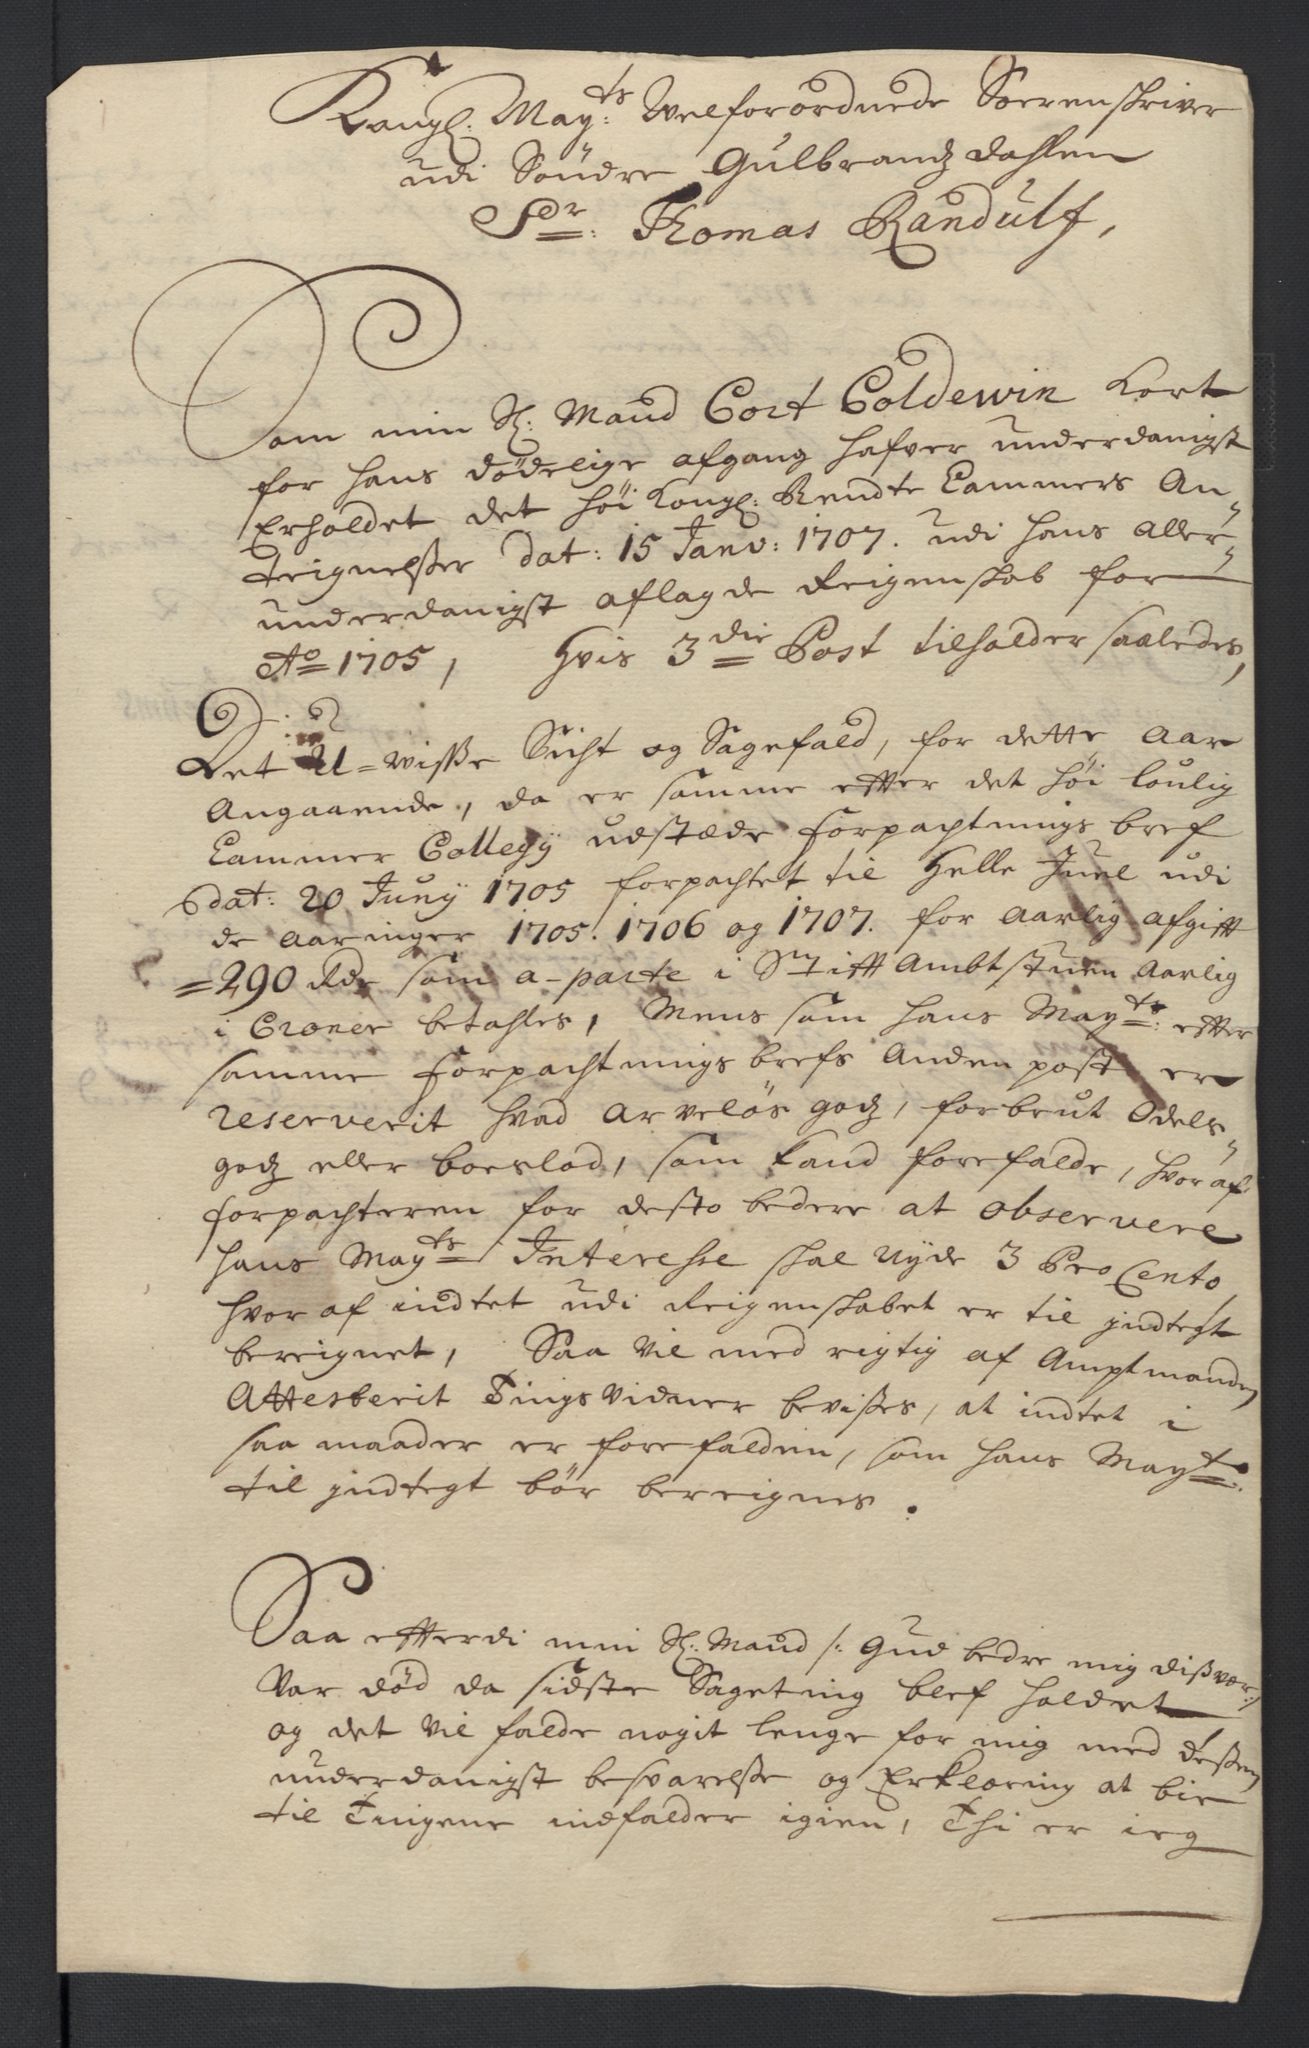 Kongl: May:ts Welforordnede Soerenskriver
udi Søndre Gulbrandz dahlen
Sr: Thomas Randulf,
Som min Sl: Mand Cort Coldewin kort
for hans dødelige afgang hafver underdanigst
Erholdet det høi Kongl: Rendte Cammers An-
teignelsser dat: 15 Janv: 1707. udi hans aller-
underdanigst aflagde Reigenskab for
Ao 1705, Hvis 3die Post tilholder saaledes,
Det U-wisse Sicht og Sagefald, for dette Aar
Angaaende, da er samme efter det høi loulig
Cammer Collegij udstæde forpachtnings bref
dat: 20 Junij 1705 forpachtet til Helle Juel udi
de aaringer 1705. 1706 og 1707. for Aarlig afgifft
=290 Rdr som a-parte i Stifft Ambtstuen Aarlig
i Croner betahles, Mens som hans May:ts efter
samme forpachtnings brefs Anden post er
reserverit hvad arveløs godz, forbrut Odels-
godz eller boeslod, som kand forefalde, hvoraf
forpachteren for desto bedere at observere
hans May:ts Interesse skal nyde 3 Pro Cento,
hvoraf indtet udi Reigenskabet er til jndtegt
bereignet, Saa vil med rigtig af Amptmanden
Attesterit Tings Vidner bevisses, at indtet i
saa maader er forefalden, som hans May:t
til jndtegt bør bereignes.
Saa efterdi min Sl: Mand /: Gud bedre mig disver:/
Var død da sidste Sageting blef holdet
og det vil falde nogit lenge for mig med dessen
underdanigst besvarelsse og Erklæring at bie
til Tingene indfalder igien, Thi er ieg